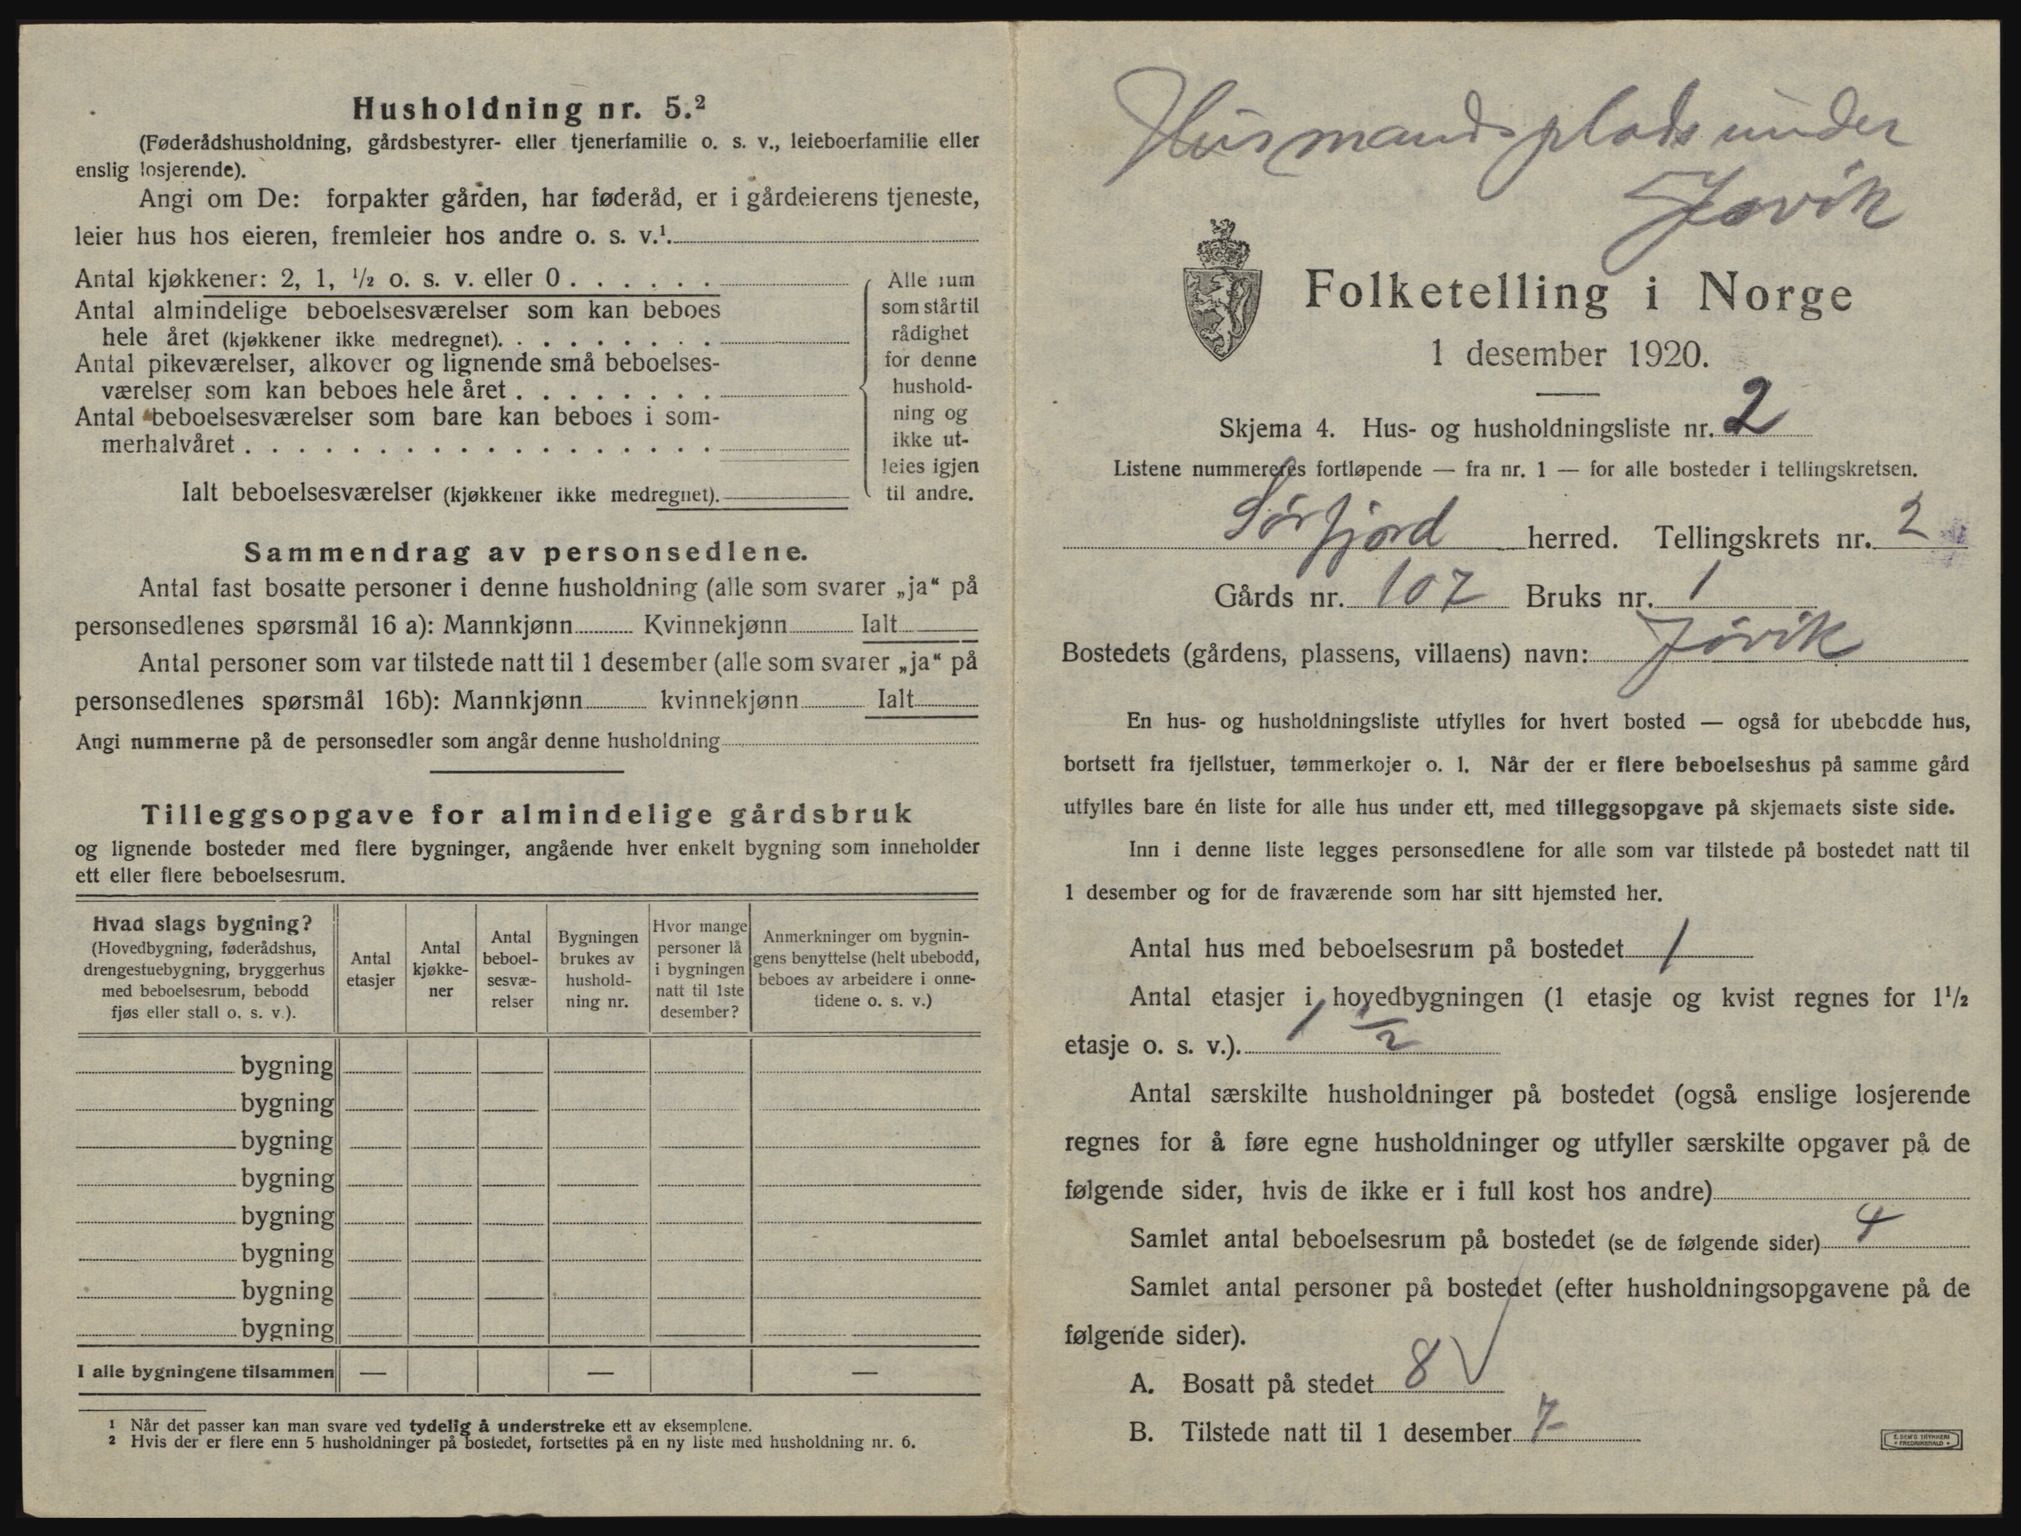 Husholdning nr. 5.²
(Føderådshusholdning, gårdsbestyrer- eller tjenerfamilie o. s. v., leieboerfamilie eller
enslig losjerende).
Angi om De: forpakter gården, har føderåd, er i gårdeierens tjeneste,
leier hus hos eieren, fremleier hos andre o. s. v.¹.
Antal kjøkkener: 2, 1, ½ o. s. v. eller 0
Antal almindelige beboelsesværelser som kan beboes
hele året (kjøkkener ikke medregnet).
Antal pikeværelser, alkover og lignende små beboelses-
værelser som kan beboes hele året
Antal beboelsesværelser som bare kan beboes i som-
merhalvåret
Ialt beboelsesværelser (kjøkkener ikke medregnet).
Alle rum
som står til
rådighet
for denne
hushold-
ning og
ikke ut-
leies igjen
til andre.
Sammendrag av personsedlene.
Antal fast bosatte personer i denne husholdning (alle som svarer „ja“ på
personsedlenes spørsmål 16 a): Mannkjønn Kvinnekjønn Ialt
Antal personer som var tilstede natt til 1 desember (alle som svarer „ja“ på
personsedlenes spørsmål 16b): Mannkjønn kvinnekjønn Ialt
Angi nummerne på de personsedler som angår denne husholdning
Tilleggsopgave for almindelige gårdsbruk
og lignende bosteder med flere bygninger, angående hver enkelt bygning som inneholder
ett eller flere beboelsesrum.
Hvad slags bygning?
(Hovedbygning, føderådshus,
drengestuebygning, bryggerhus
med beboelsesrum, bebodd
fjøs eller stall o. s. v.).
Antal
etasjer
Antal
kjøkke-
ner
Antal
beboel-
sesvæ-
relser
Bygningen
brukes av
hushold-
ning nr.
Hvor mange
personer lå
i bygningen
natt til 1ste
desember?
Anmerkninger om bygnin-
gens benyttelse (helt ubebodd,
beboes av arbeidere i onne-
tidene o. s. v.)
bygning
bygning
bygning
bygning
bygning
bygning
bygning
bygning
I alle bygningene tilsammen — — —
¹ Når det passer kan man svare ved tydelig å understreke ett av eksemplene.
² Hvis der er flere enn 5 husholdninger på bostedet, fortsettes på en ny liste med husholdning nr. 6.
Husmandsplads under
Jøvik
Folketelling i Norge
1 desember 1920.
Skjema 4. Hus- og husholdningsliste nr. 2
Listene nummereres fortløpende — fra nr. 1 — for alle bosteder i tellingskretsen.
Sørfjord herred. Tellingskrets nr. 2
Gårds nr. 107 Bruks nr. 1
Bostedets (gårdens, plassens, villaens) navn: Jøvik
En hus- og husholdningsliste utfylles for hvert bosted — også for ubebodde hus,
bortsett fra fjellstuer, tømmerkojer o. l. Når der er flere beboelseshus på samme gård
utfylles bare én liste for alle hus under ett, med tilleggsopgave på skjemaets siste side.
Inn i denne liste legges personsedlene for alle som var tilstede på bostedet natt til
1 desember og for de fraværende som har sitt hjemsted her.
Antal hus med beboelsesrum på bostedet 1
Antal etasjer i hovedbygningen (1 etasje og kvist regnes for 1½
etasje o. s. v.). 1 ½
Antal særskilte husholdninger på bostedet (også enslige losjerende
regnes for å føre egne husholdninger og utfyller særskilte opgaver på de
følgende sider, hvis de ikke er i full kost hos andre)
Samlet antal beboelsesrum på bostedet (se de følgende sider) 4
Samlet antal personer på bostedet (efter husholdningsopgavene på de
følgende sider).
A. Bosatt på stedet 8
B. Tilstede natt til 1 desember 7
E. SEM'S TRYKKERI
FREDRIKSHALD